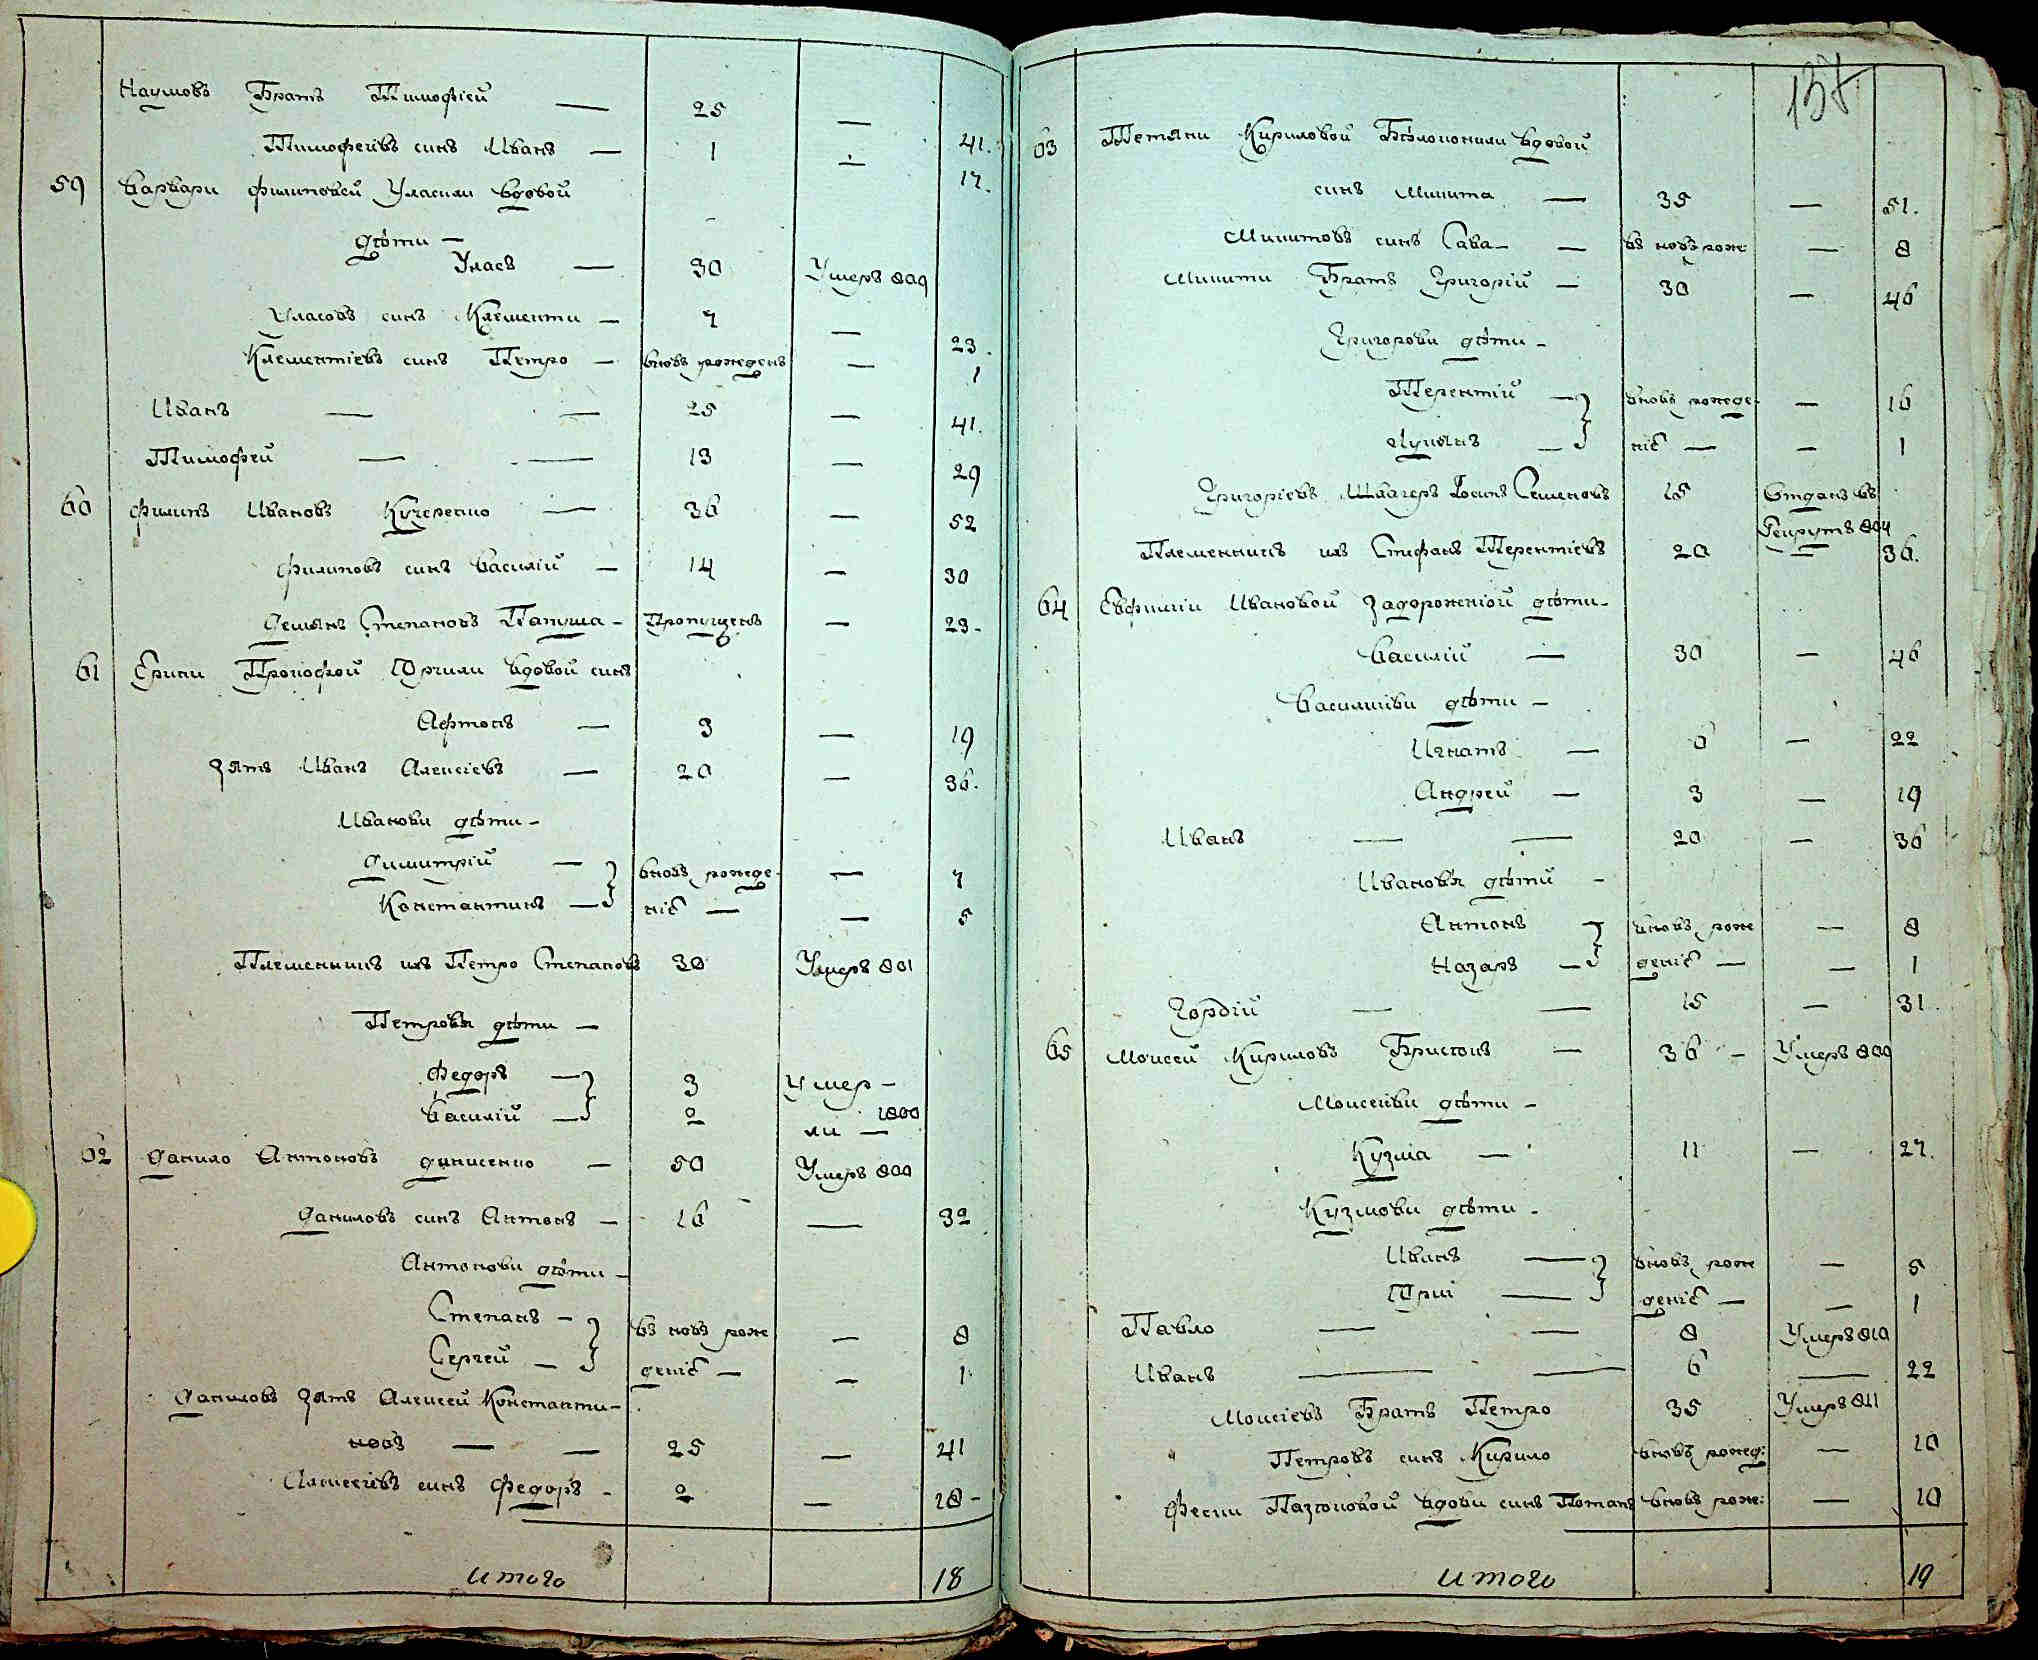 Наумовъ Братъ Тимофѣй — 25 — 41.
Тимофеевъ синъ Иванъ — 1 — 17.
59 Варвари Филиповой Уласихи вдовой
дѣти —
Уласъ — 30 Умеръ 809
Уласовъ синъ Клементи — 7 — 23.
Клементіевъ синъ Петро — вновь рожденъ — 1
Иванъ — — 25 — 41.
Тимофей — — 13 — 29
60 Филипъ Ивановъ Кучеренко — 36 — 52
Филиповъ синъ Василій — 14 — 30
Демянъ Степановъ — Пропущенъ — 23-
61 Ирини Прокофой вдовой синъ
Афтонъ — 3 — 19
Зять Иванъ Алексіевъ — 20 — 36.
Иванови дѣти —
Димитрій — вновь рожде- — 7
Константинъ — ніе — — 5
Племенникъ ихъ Петро Степановъ 30 Умеръ 801
Петровы дѣти —
Федоръ — 3 Умер-
Василій — 2 ли — 1800
62 Данило Антоновъ Динисенко — 50 Умеръ 800
Даниловъ синъ Антонъ — 16 — 32
Антонови дѣти —
Степанъ — въ новь рож — 8
Сергей — деніе — — 1
Даниловъ зять Алексей Константи-
новъ — — 25 — 41
Алексеевъ синъ Федоръ - 2 — 18-
итого 18
137
63 Тетяни Кириловой вдовой
синъ Микита — 35 — 51.
Микитовъ синъ Сава — — въ новь рож — 8
Микити Братъ Григорій — 30 — 46
Григорови дѣти —
Терентій — вновь рожде- — 16
Лукянъ — ніе — — 1
Григоріевъ Швагеръ Іосипъ Семеновъ 15 Отданъ въ
Рекрутъ 804
Племенникъ ихъ Стефанъ Терентіевъ 20 — 36.
64 Евфиміи Ивановой Задорожніой дѣти —
Василій — 30 — 46
Василіиви дѣти —
Игнатъ — 6 — 22
Андрей — 3 — 19
Иванъ — — 20 — 36
Ивановы дѣти —
Антонъ вновь рож — 8
Назаръ — деніе — — 1
Гордій — — 15 — 31.
65 Моисей Кириловъ — 36 — Умеръ 809
Моисеіви дѣти —
Кузма — 11 — 27.
Кузмови дѣти —
Иванъ — вновь рож — 5
Юрій — деніе — — 1
Павло — — 8 Умеръ 810
Иванъ — — 6 — 22
Моисіевъ Братъ Петро 35 Умеръ 811
Петровъ синъ Кирило вновь рожд: — 10
Фески вдови синъ Потапъ вновь рож: — 10
итого 19